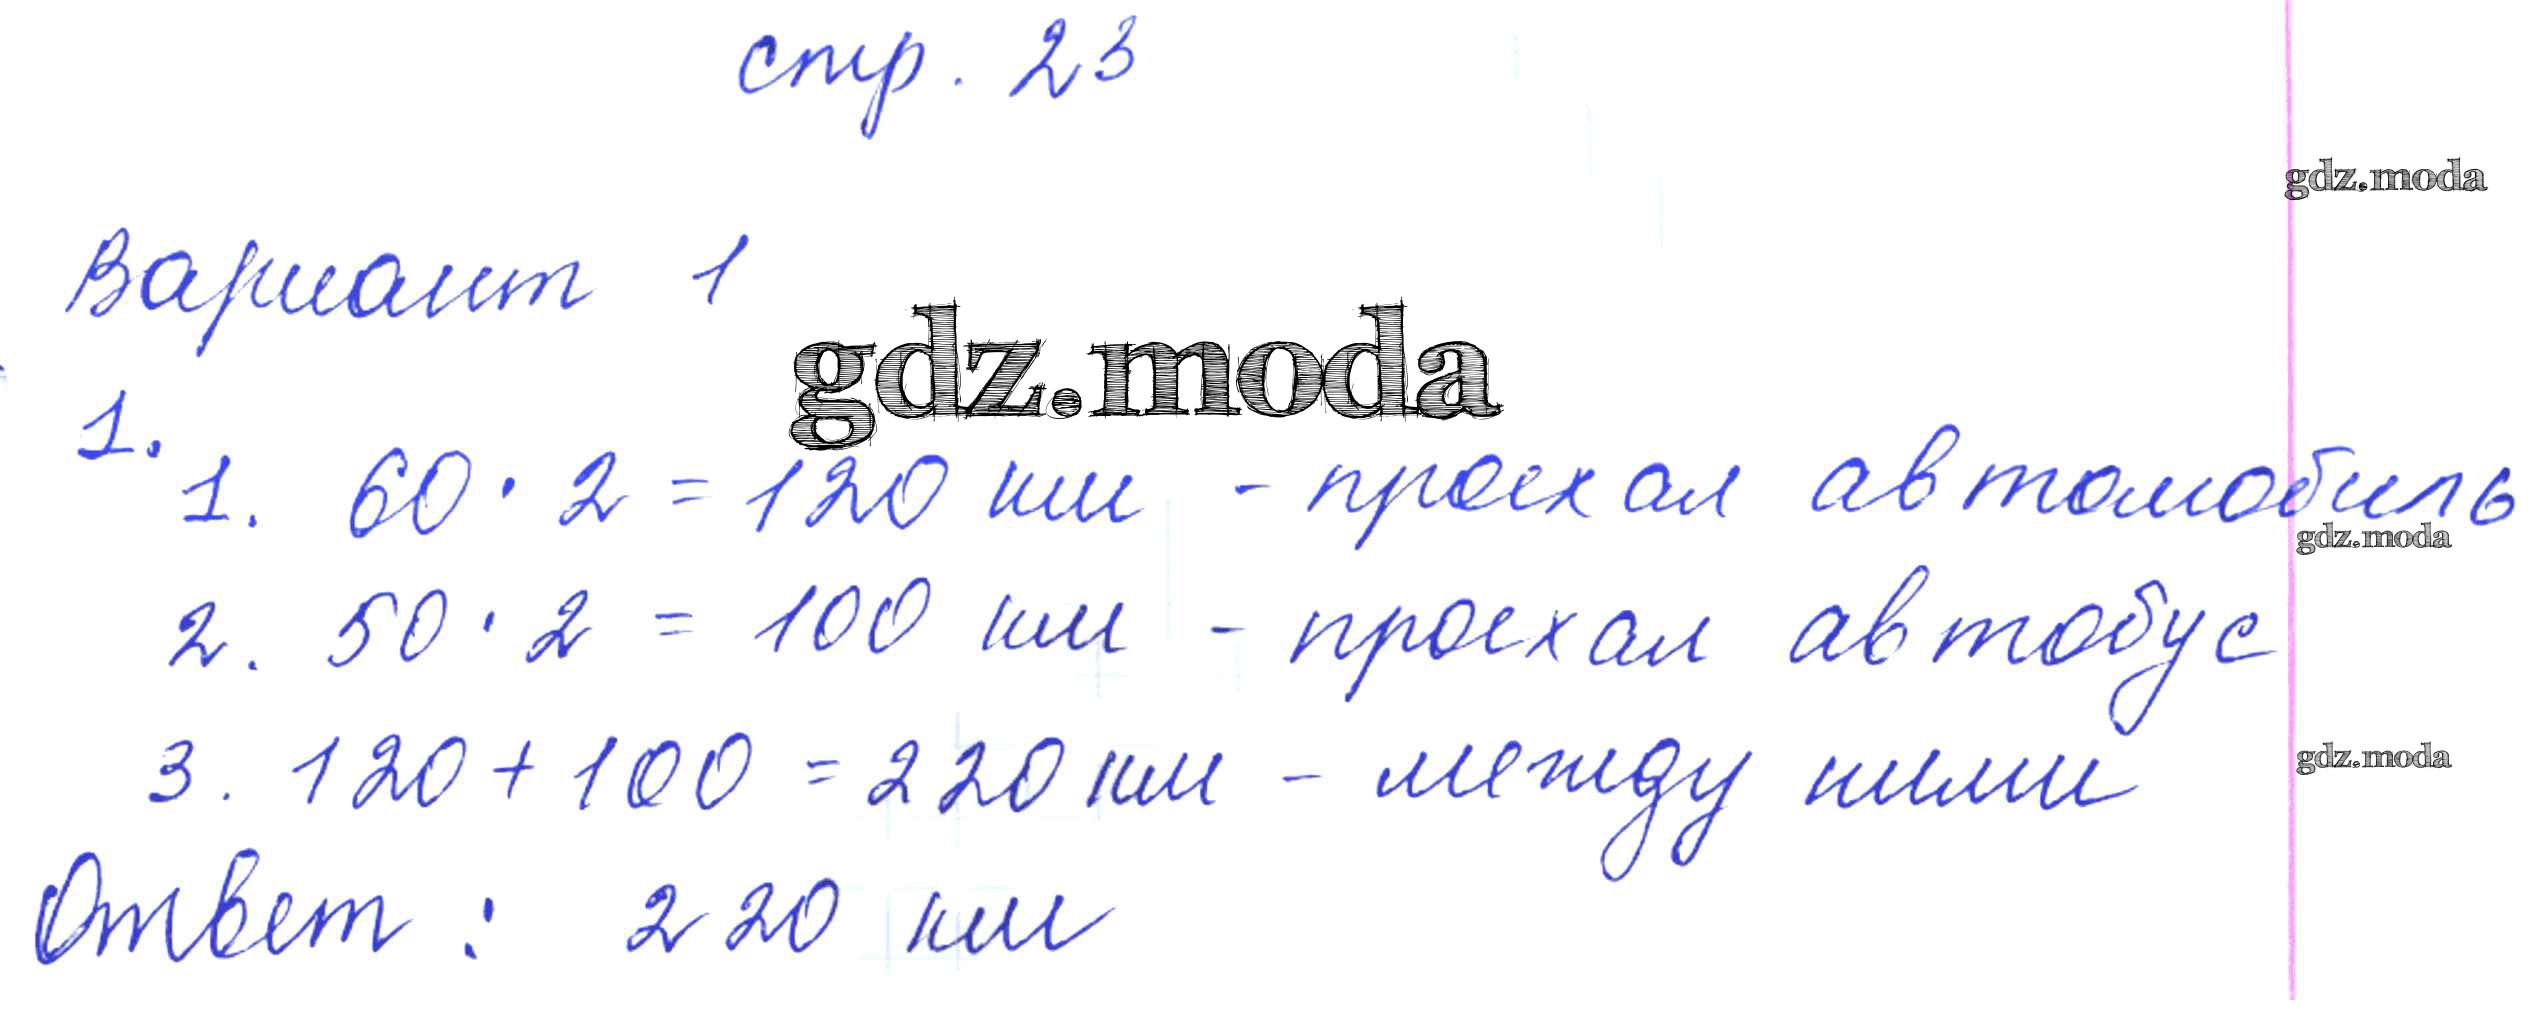 стр. 23
gdz.moda
Вариант 1
gdz.moda
1.
1. 60 · 2 = 120 км - проехал автомобиль
gdz.moda
2. 50 · 2 = 100 км - проехал автобус
3. 120 + 100 = 220 км - между ними
gdz.moda
Ответ : 220 км